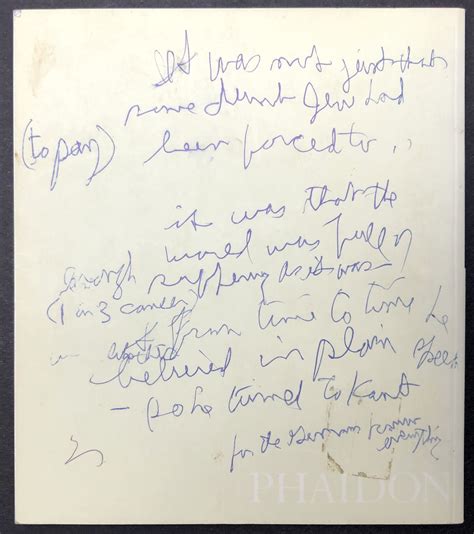 It was not just that
some dumb Jew had
(to pay) been forced to ..
it was that the
world was full of
enough suffering as it was -
(1 in 3 cancer)
from time to time he
believed in plain
- so he turned to Kant
for the Germans
everything
PHAIDON